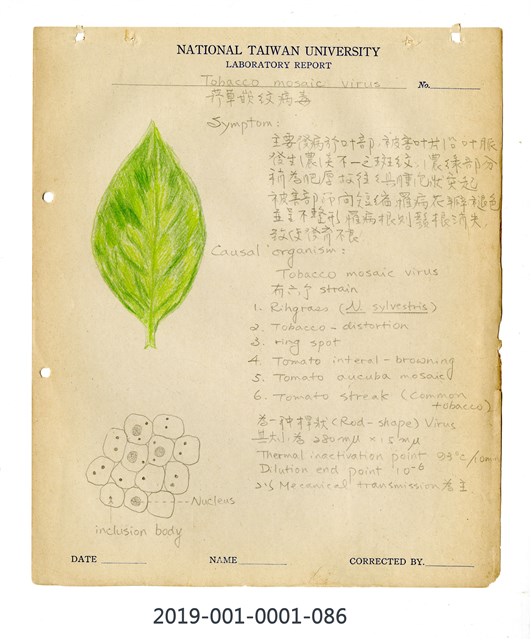 NATIONAL TAIWAN UNIVERSITY
LABORATORY REPORT
Tobacco mosaic virus No.
菸草嵌紋病毒
Symptom:
主要發病於叶部, 被害叶片沿叶脈
發生濃淡不一之斑紋, 濃綠部分
稍為肥厚, 往往為腫泡狀突起
被害部向
並呈不整形 罹病根則鬚根消失
致使發育不良
Causal organism:
Tobacco mosaic virus
有六个 strain
1. Rihgrass (N. sylvestris)
2. Tobacco - distortion
3. ring spot
4. Tomato interal - browning
5. Tomato aucuba mosaic
6. Tomato streak (Common
tobacco)
為一种桿狀 (Rod - shape) Virus
其大小為 280 mμ × 15 mμ
Thermal inactivation point 93°C /10min
Dilution end point 10-6
以 Mecanical transmission 為主
Nucleus
inclusion body
DATE NAME CORRECTED BY.
2019-001-0001-086